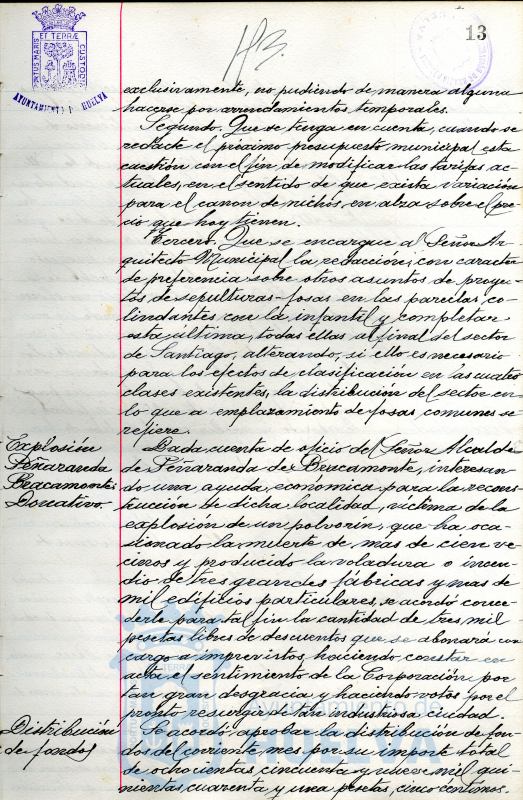 13
PORTUS MARIS
ET TERRÆ
CUSTODIA
AYUNTAMIENTO DE HUELVA
exclusivamente, no pudiendo de manera alguna
hacerse por arrendamientos temporales.
Segundo. Que se tenga en cuenta, cuando se
redacte el próximo presupuesto municipal esta
cuestión con el fin de modificar las tarifas ac-
tuales, en el sentido de que exista variación
para el canon de nichos, en alza sobre el pre-
cio que hoy tienen.
Tercero. Que se encargue al Señor Ar-
quitecto Municipal la redacción, con caracter
de preferencia sobre otros asuntos de proyec-
tos de sepulturas-fosas en las parcelas, co-
lindantes con la infantil y completar
esta última, todas ellas al final del sector
de Santiago, alterando, si ello es necesario
para los efectos de clasificación en las cuatro
clases existentes, la distribución del sector en
lo que a emplazamiento de fosas comunes se
refiere.
Explosión
Peñaranda
Bracamonte:
Donativo.
Dada cuenta de oficio del Señor Alcalde
de Peñaranda de Bracamonte, interesan-
do una ayuda, económica para la recons-
trucción de dicha localidad, víctima de la
explosión de un polvorín, que ha oca-
sionado la muerte de mas de cien ve-
cinos y producido la voladura o incen-
dio de tres grandes fábricas y mas de
mil edificios particulares, se acordó conce-
derle para tal fin la cantidad de tres mil
pesetas libres de descuentos que se abonará con
cargo a imprevistos, haciendo constar en
acta el sentimiento de la Corporación por
tan gran desgracia y haciendo votos por el
pronto resurgir de tan industriosa ciudad.
Distribución
de fondos
Se acordó, aprobar la distribución de fon-
dos del corriente mes por su importe total
de ochocientas, cincuenta y nueve mil qui-
nientas cuarenta y una pesetas, cinco centimos.
Ayuntamiento de
HUELVA